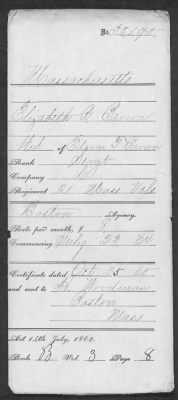 No.
Massachusetts
Elizabeth A. Brown
Wid of Brown
Rank Sergt
Company D
Regiment 21 Mass Vols
Boston Agency.
Rate per month, $ 8
Commencing July 22
Certificate dated Oct 25
and sent to Woodwin
Boston
Mass
Act 14th July, 1862.
Book B Vol. 3 Page 8